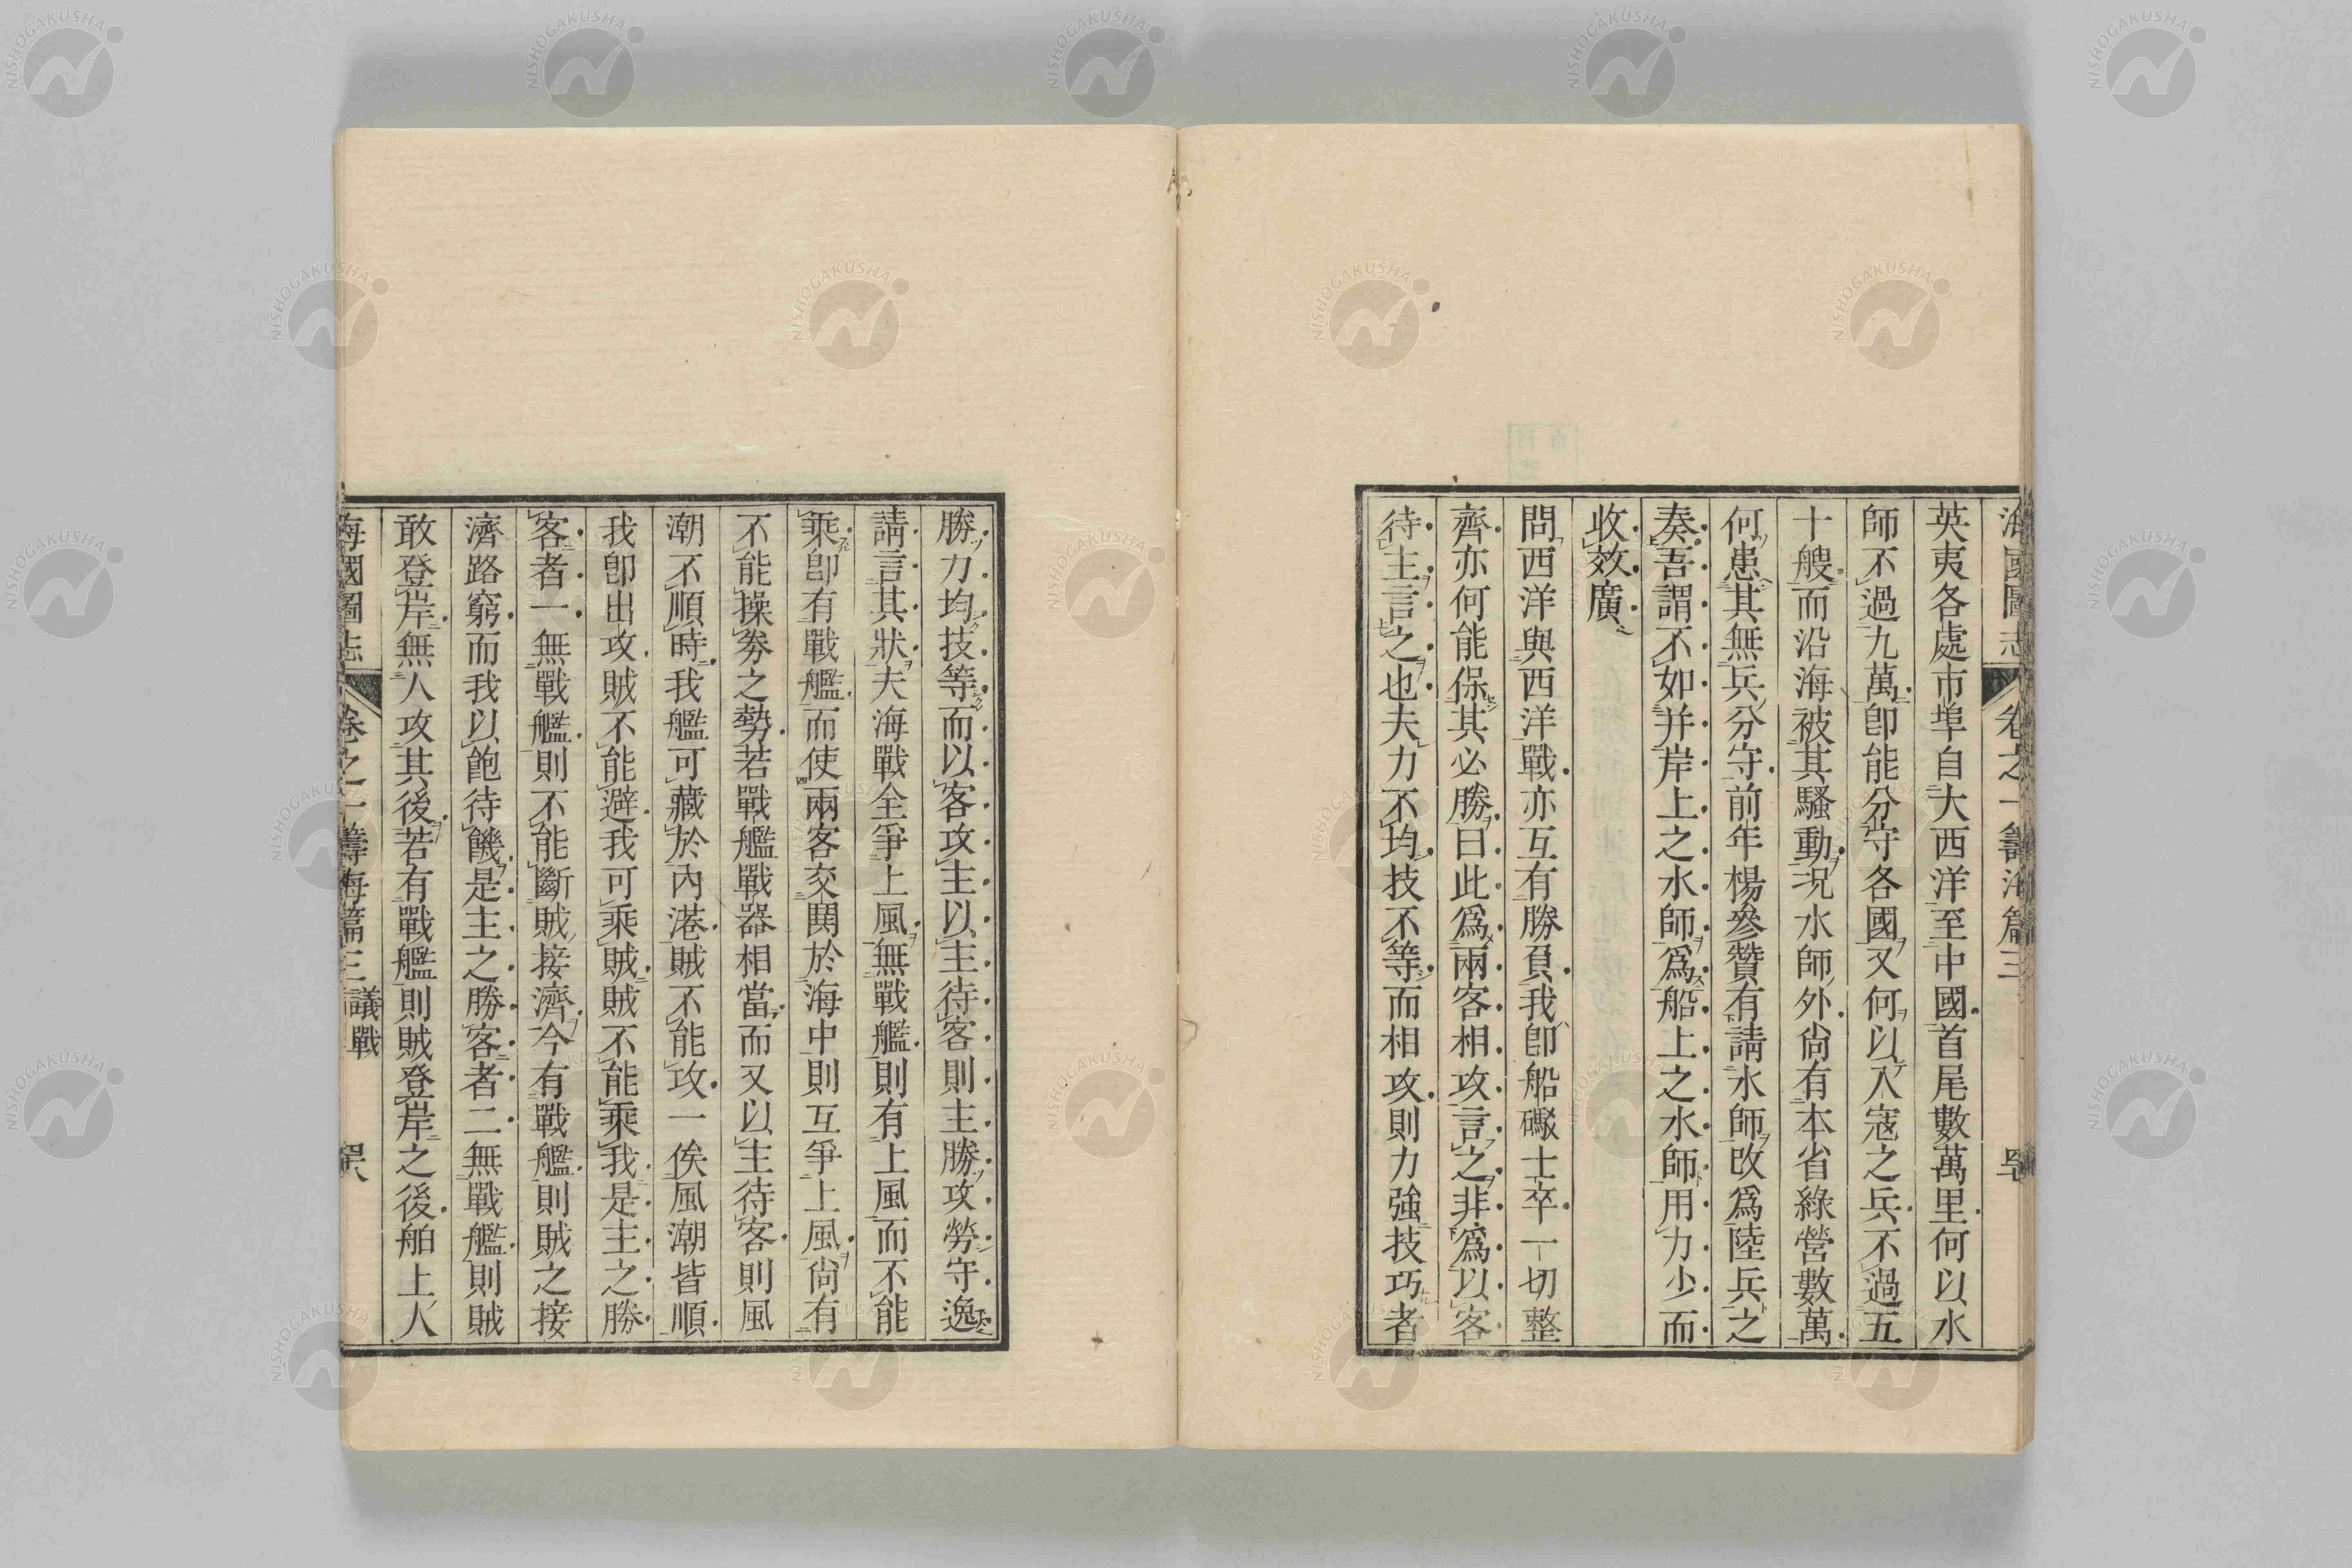 海國圖志 卷之一 籌海篇三
英夷各處市埠自大西洋至中國首尾數萬里何以水
師不過九萬卽能分守各國又何以入寇之兵不過五
十艘而沿海被其騷動況水師外尙有本省綠營數萬
何患其無兵分守前年楊參贊有請水師改爲陸兵之
奏吾謂不如并岸上之水師爲船上之水師用力少而
收效廣
問西洋與西洋戰亦互有勝負我卽船礮士卒一切整
齊亦何能保其必勝曰此爲兩客相攻言之非爲以客
待主言之也夫力不均技不等而相攻則力強技巧者
勝力均技等而以客攻主以主待客則主勝攻勞守逸
請言其狀夫海戰全爭上風無戰艦則有上風而不能
乘卽有戰艦而使兩客交鬨於海中則互爭上風尙有
不能操劵之勢若戰艦戰器相當而又以主待客則風
潮不順時我艦可藏於內港賊不能攻一俟風潮皆順
我卽出攻賊不能避我可乘賊賊不能乘我是主之勝
客者一無戰艦則不能斷賊接濟今有戰艦則賊之接
濟路窮而我以飽待饑是主之勝客者二無戰艦則賊
敢登岸無人攻其後若有戰艦則賊登岸之後舶上人
海國圖志 卷之一 籌海篇三 議戰
NISHOGAKUSHA